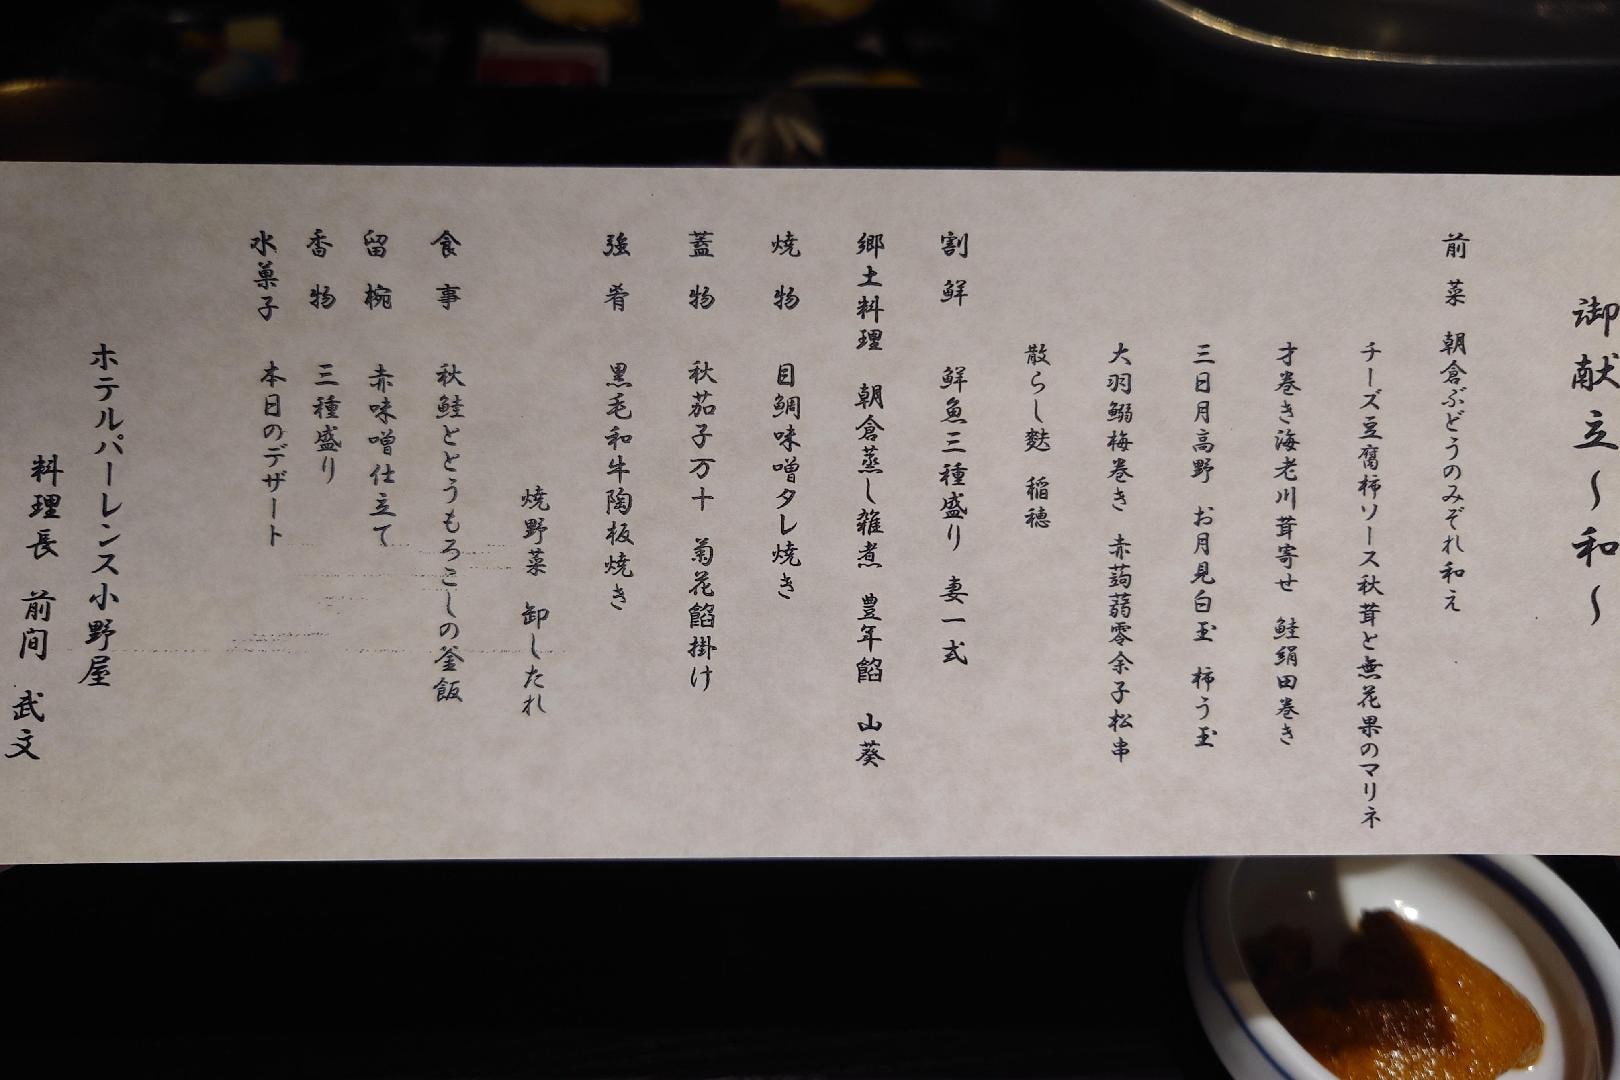 御献立～和～
前菜 朝倉ぶどうのみぞれ和え
チーズ豆腐柿ソース秋茸と無花果のマリネ
才巻き海老川茸寄せ 鮭絹田巻き
三日月高野 お月見白玉 柿う玉
大羽鰯梅巻き 赤蒟蒻零余子松串
散らし麩 稲穂
割鮮 鮮魚三種盛り 妻一式
郷土料理 朝倉蒸し雑煮 豊年餡 山葵
焼物 目鯛味噌タレ焼き
蓋物 秋茄子万十 菊花餡掛け
強肴 黒毛和牛陶板焼き
焼野菜 卸したれ
食事 秋鮭ととうもろこしの釜飯
留椀 赤味噌仕立て
香物 三種盛り
水菓子 本日のデザート
ホテルパーレンス小野屋
料理長 前間 武文